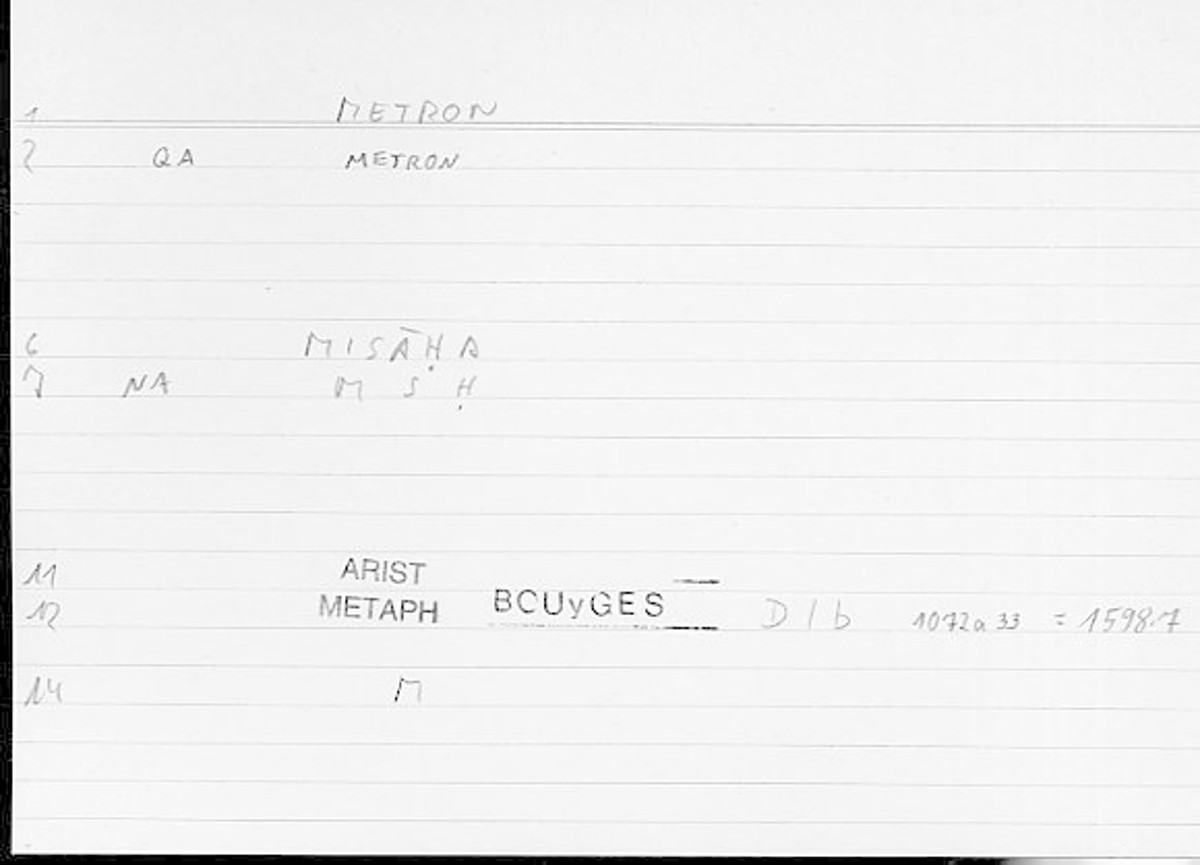 1 METRON
2 QA METRON
6 MISĀḤA
7 NA M S Ḥ
11 ARIST
12 METAPH BCUyGES D 1 b 1072a 33 = 1598.7
14 M